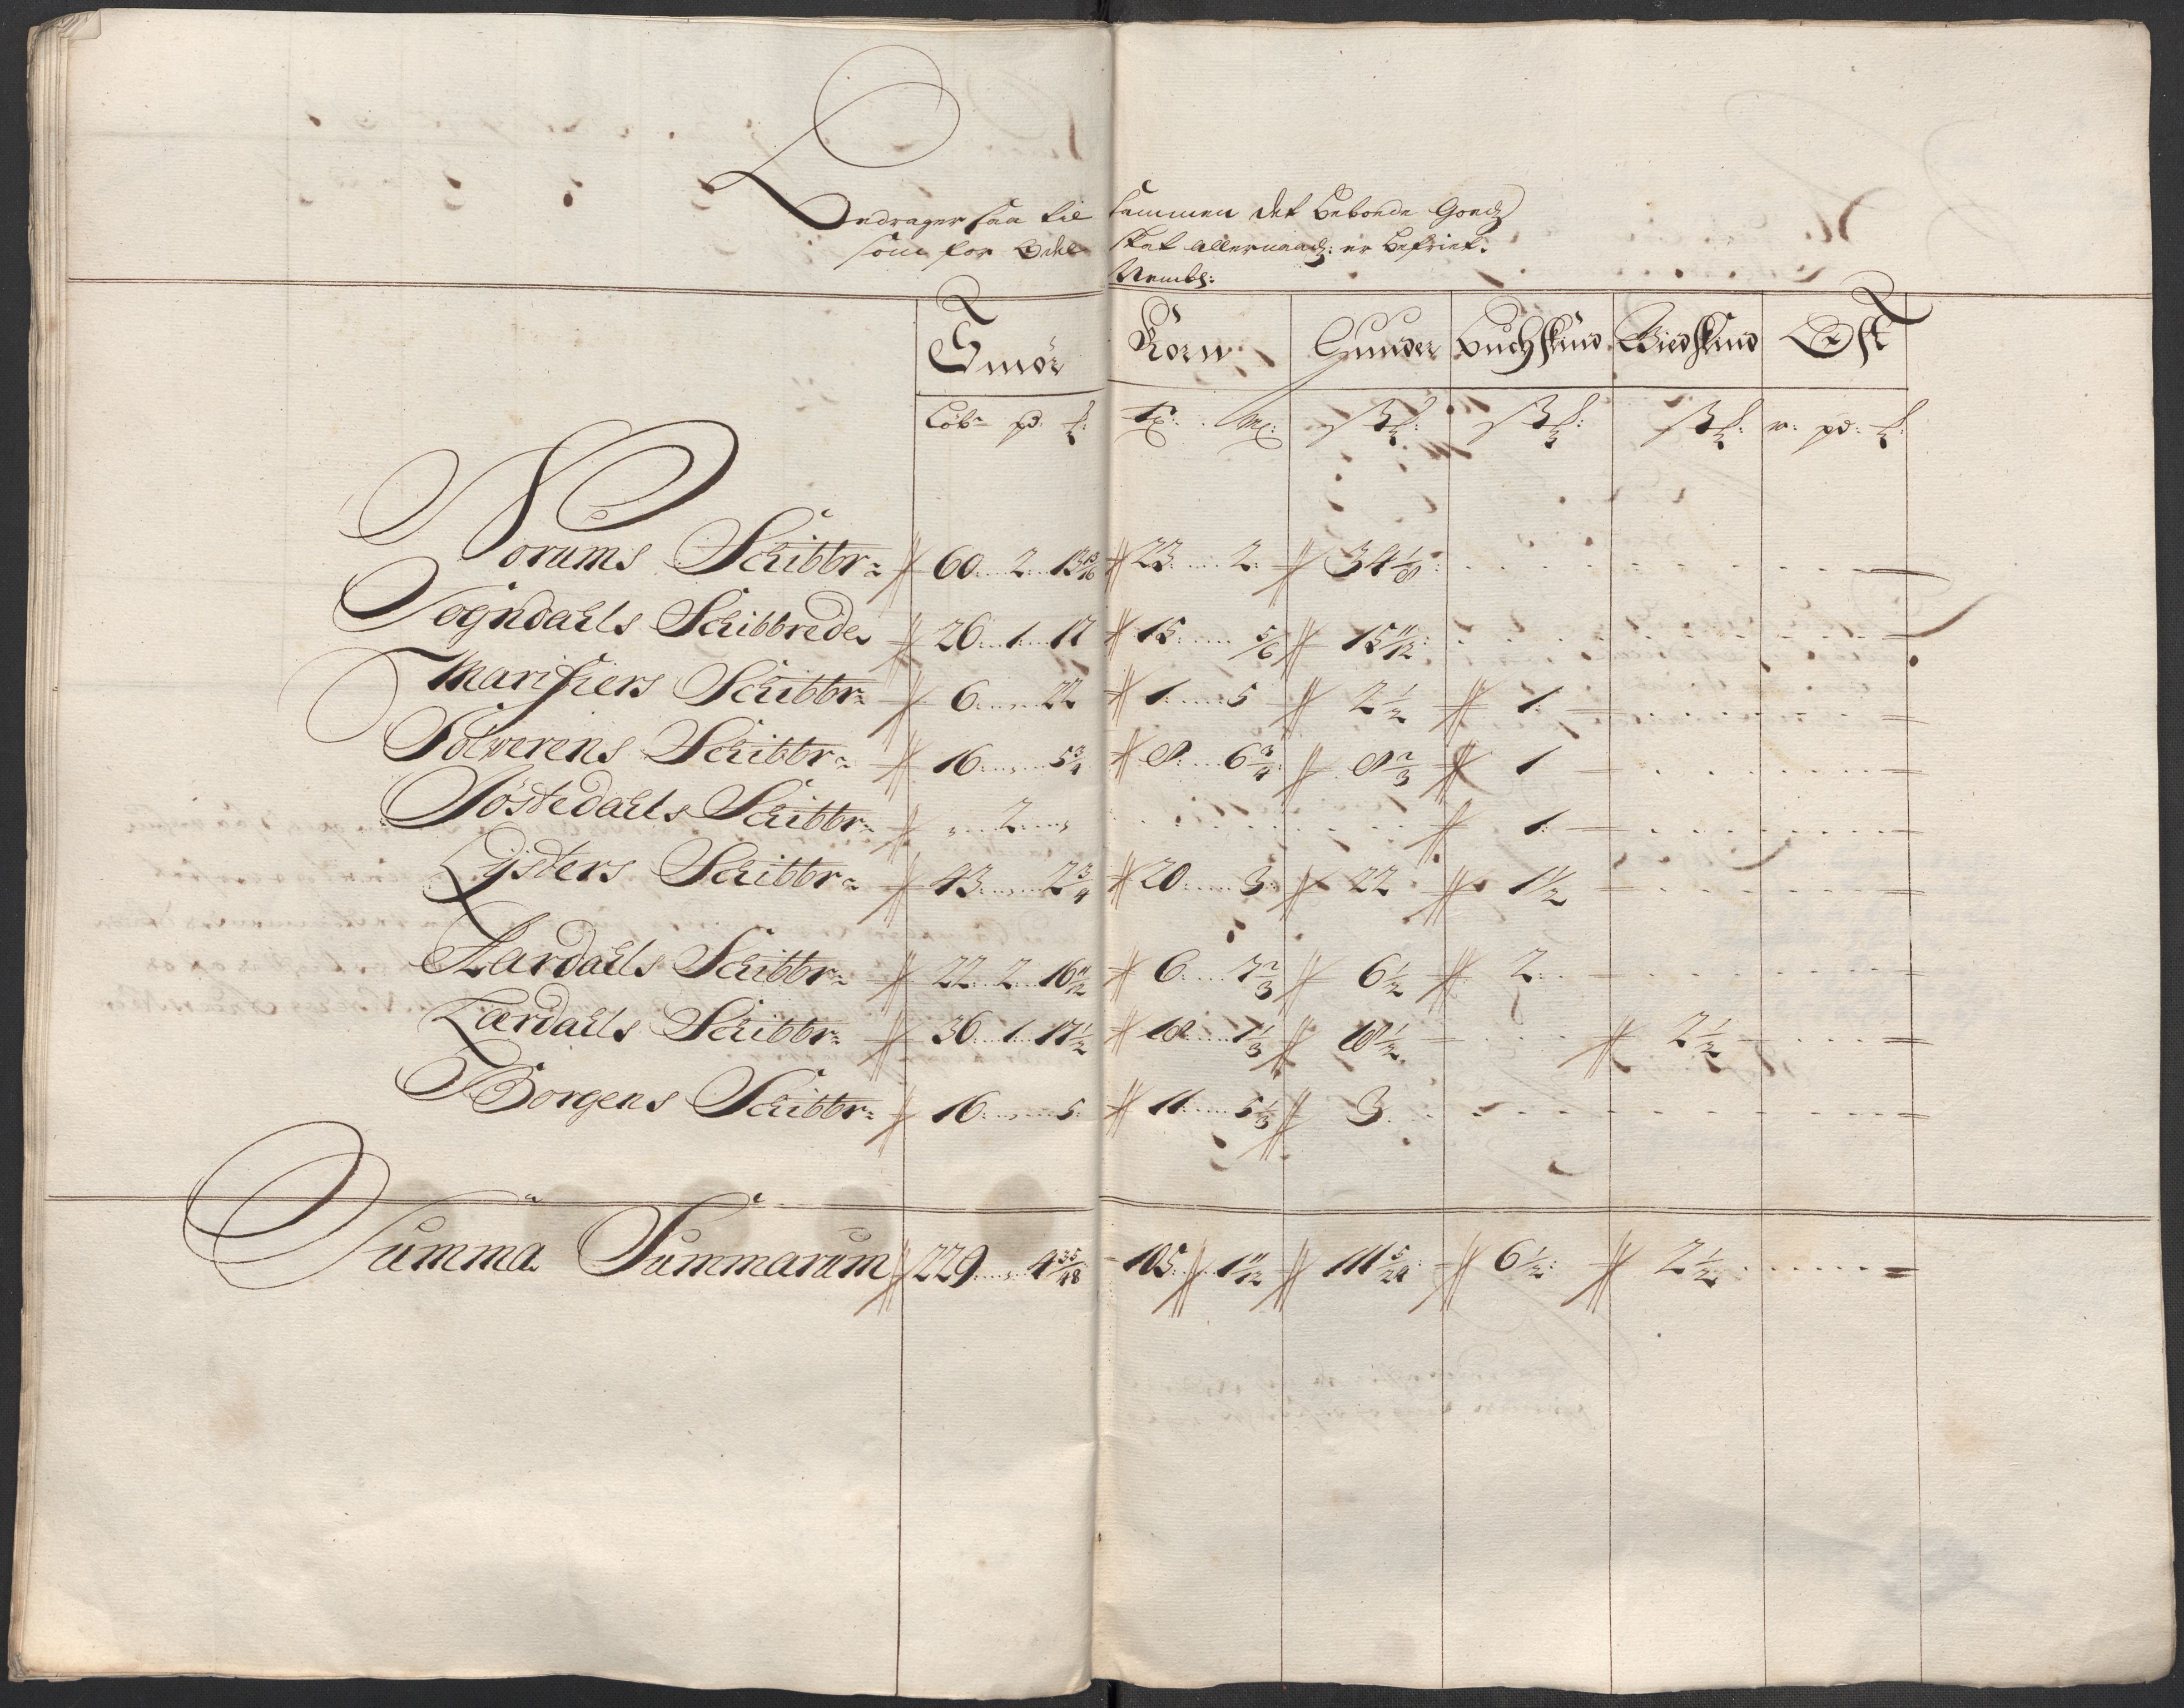 Andrager saa til sammen det beboede Goedz
som for Odels skat allernaad: er befriet.
Nembl:
Smör Korn Hunder Buchskind Giedskind Ost
Löb pd: ℔: Tr: Mr: st: st: st: v: pd: ℔:
Norums Schibbr: 60 .. 2 .. 13 13/16 23 .. 2 34 1/8
Sogndahls Schibbrede 26 .. 1 .. 17 15 .. 5/6 15 11/12
Marifiers Schibbr: 6 .. „ .. 22 1 .. 5 2 1/2 1
Solverens Schibbr: 16 .. „ .. 5 3/4 8 .. 6 3/4 8 2/3 1
Jostedahls Schibbr: „ .. 2 .. „ 1
Lysters Schibbr: 43 .. „ .. 2 3/4 20 .. 3 22 1 1/2
Aardahls Schibbr: 22 .. 2 .. 16 11/12 6 .. 7 2/3 6 1/2 2
Lærdahls Schibbr: 36 .. 1 .. 17 1/2 18 .. 1 1/3 18 1/2 2 1/2
Borgens Schibbr: 16 .. „ .. 5 11 .. 5 1/3 3
Summa Summarum 229 .. „ .. 4 35/48 105 .. 1 11/12 111 5/24 6 1/2 2 1/2